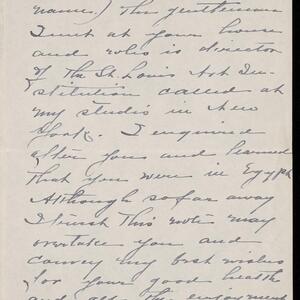 name.) The gentleman
I met at your house
and who is director
of the St. Louis Art In-
stitution called at
my studio in New
York. I enquired
after you and learned
that you were in Egypt
Although so far away
I trust this note may
overtake you and
convey my best wishes
for your good health
and all the enjoyment